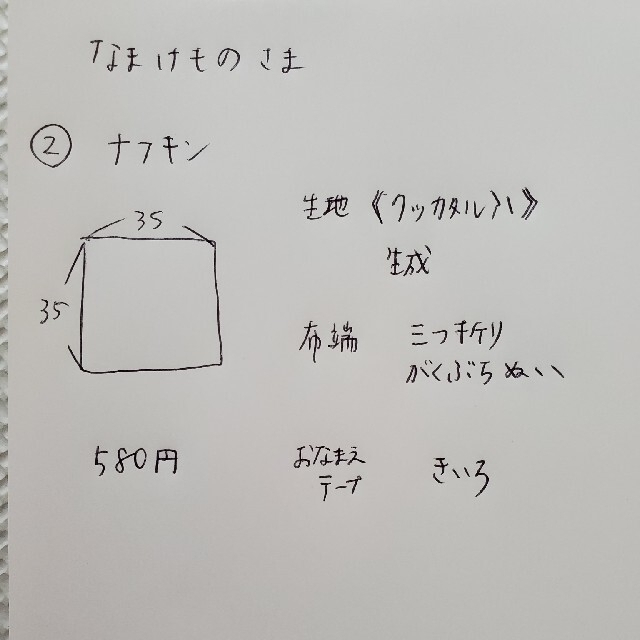 なまけものさま
② ナフキン
35
35
生地 《クッカタルハ》
生成
布端 三つ折り
がくぶちぬい
580円
おなまえ
テープ
きいろ